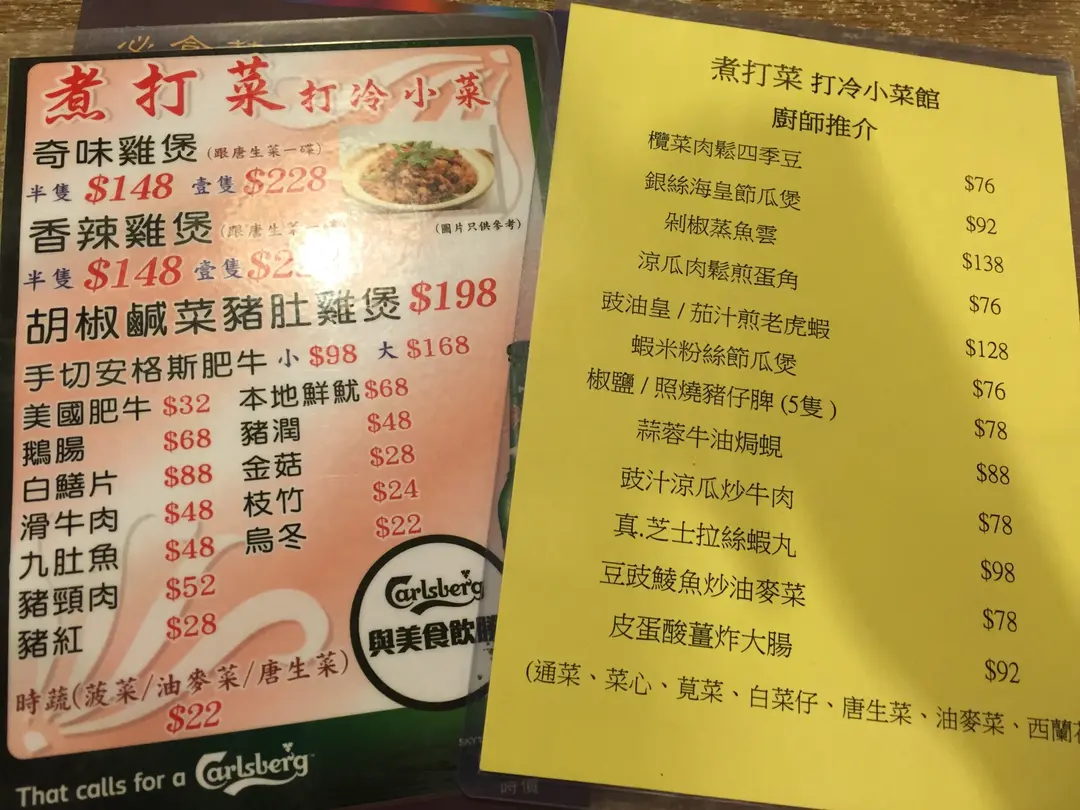 煮打菜 打冷小菜
奇味雞煲 (跟唐生菜一碟)
半隻 $148 壹隻 $228
香辣雞煲 (跟唐生菜一碟)
(圖片只供參考)
半隻 $148 壹隻
胡椒鹹菜豬肚雞煲 $198
手切安格斯肥牛 小 $98 大 $168
美國肥牛 $32
鵝腸 $68
白鱔片 $88
滑牛肉 $48
九肚魚 $48
豬頸肉 $52
豬紅 $28
本地鮮魷 $68
豬潤 $48
金菇 $28
枝竹 $24
烏冬 $22
時蔬(菠菜/油麥菜/唐生菜)
$22
Carlsberg
與美食飲勝
That calls for a Carlsberg
煮打菜 打冷小菜館
廚師推介
欖菜肉鬆四季豆 $76
銀絲海皇節瓜煲 $92
剁椒蒸魚雲 $138
涼瓜肉鬆煎蛋角 $76
豉油皇 / 茄汁煎老虎蝦 $128
蝦米粉絲節瓜煲 $76
椒鹽 / 照燒豬仔脾 (5隻 ) $78
蒜蓉牛油焗蜆 $88
豉汁涼瓜炒牛肉 $78
真.芝士拉絲蝦丸 $98
豆豉鯪魚炒油麥菜 $78
皮蛋酸薑炸大腸 $92
(通菜、菜心、莧菜、白菜仔、唐生菜、油麥菜、西蘭花
時價